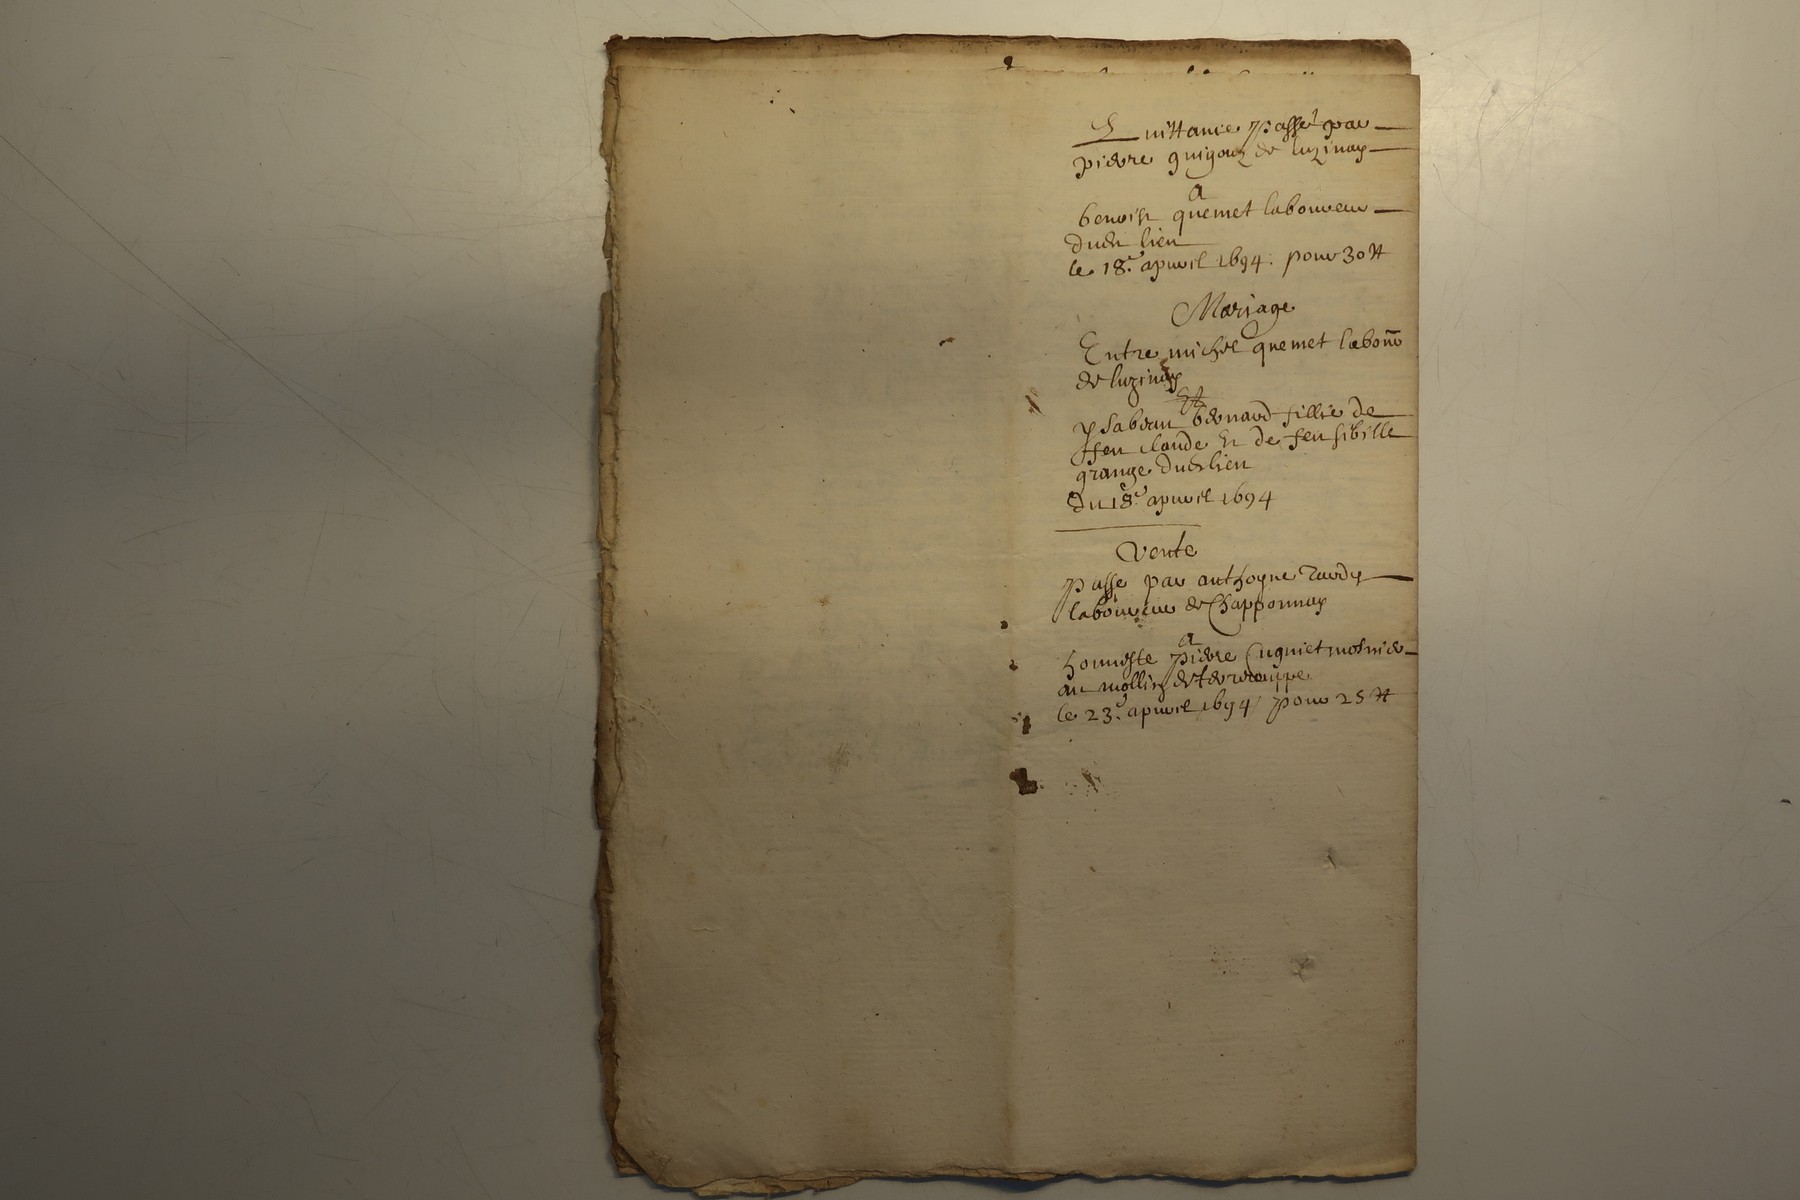 Quittance passé par
pierre guigouz de luzinay
a
benoist quemet laboureur
dudt lieu
le 18e apvril 1694. pour 30 ₶
Mariage
Entre michel quemet labour
de luzinay
Et
ysabeau bernard fillie de
ffeu claude Et de feu sibille
grange dudt lieu
du 18e apvril 1694
Vente
passe par anthoyne Tardy
laboureur de Chapponnay
a
honneste pierre Cuquiet mosnier
au mollin de
le 23e apvril 1694 pour 25 ₶